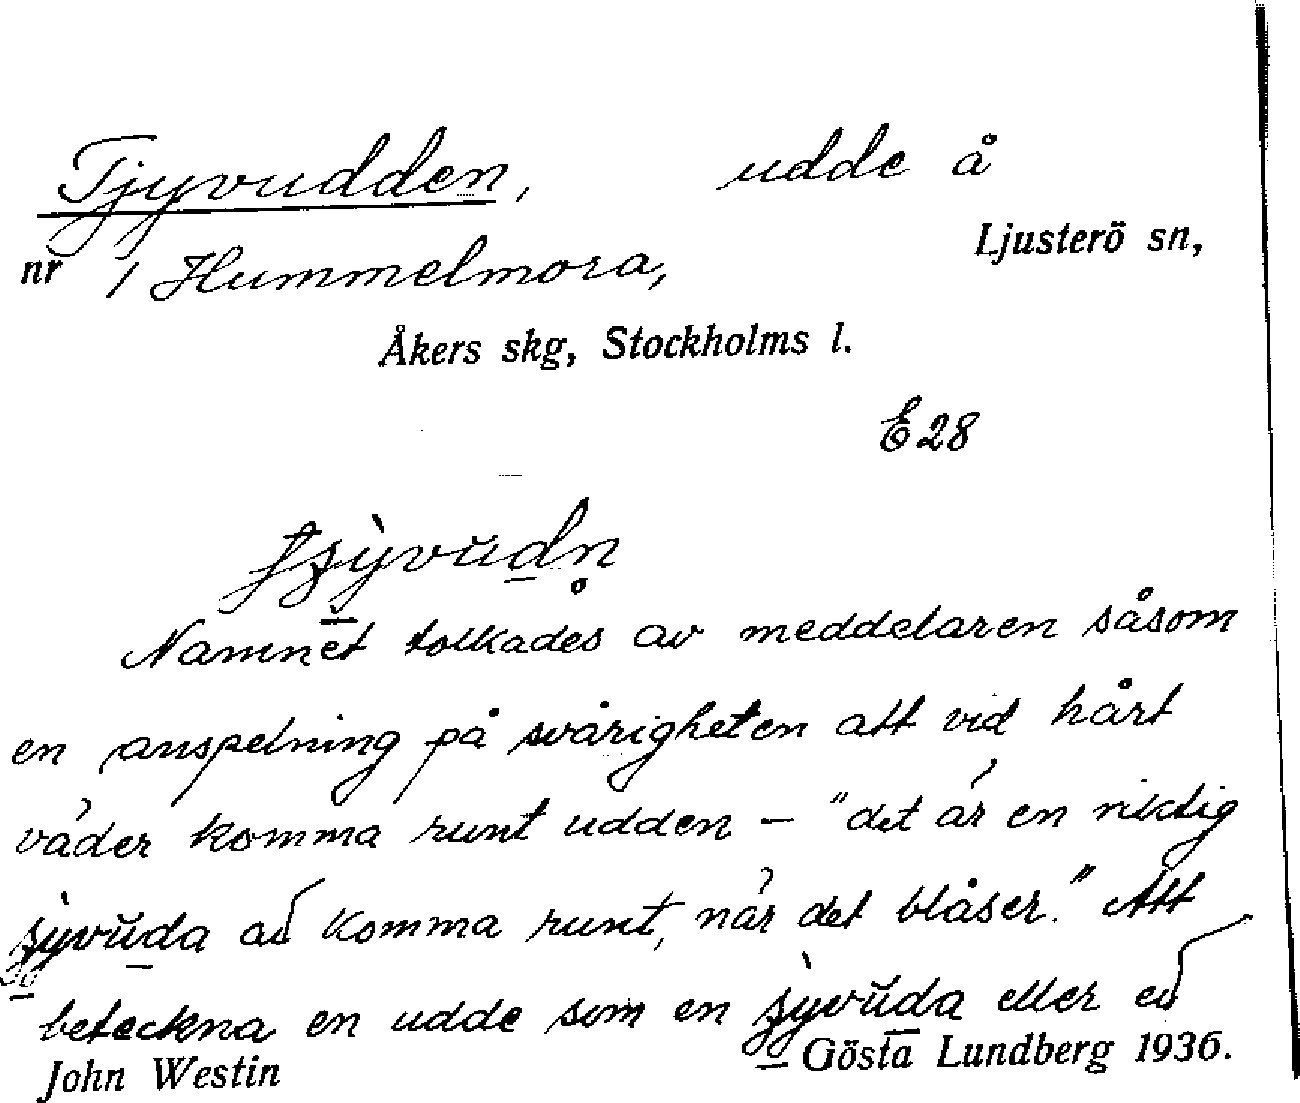 Tjyvudden, udde å
Ljusterö sn,
nr 1 Hummelmora,
Åkers skg, Stockholms l.
E 28
Namnet tolkades av meddelaren såsom
en anspelning på svårigheten att vid hårt
väder komma runt udden – "det är en riktig
komma runt, när det blåser." Att
beteckna en udde som en eller
John Westin Gösta Lundberg 1936.